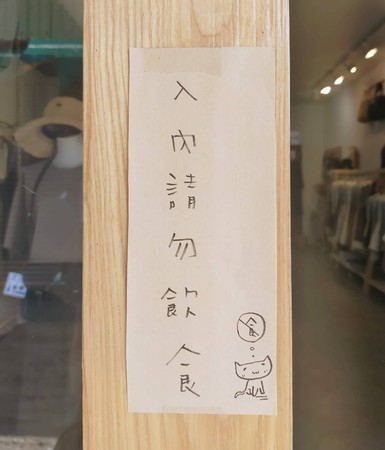 入內請勿飲食
食